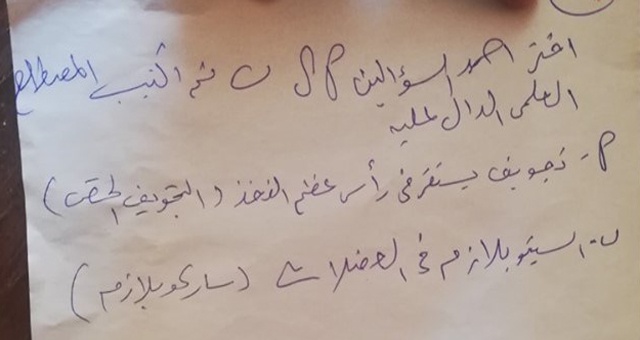 اختر احد السؤالين أ أو ب ثم اكتب المصطلح
العلمى الدال عليه
أ- تجويف يستقر فى رأس عظم الفخذ (التجويف الحقى)
ب- السيتوبلازم فى العضلات (ساركوبلازم)